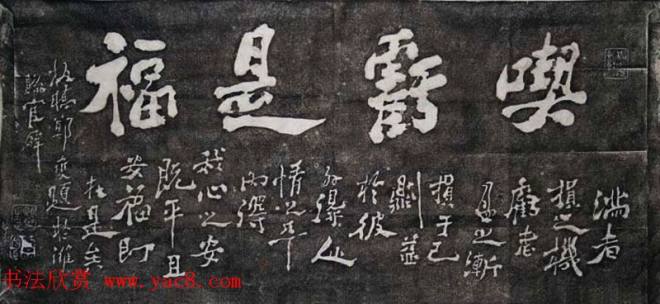 喫虧是福
滿者
損之機
虧者
盈之漸
損于己
則益
於彼
外得人
情之平
內得
我心之安
既平且
安福即
在是矣
板橋鄭燮題於濰
縣官齋
书法欣赏 www.yac8.com